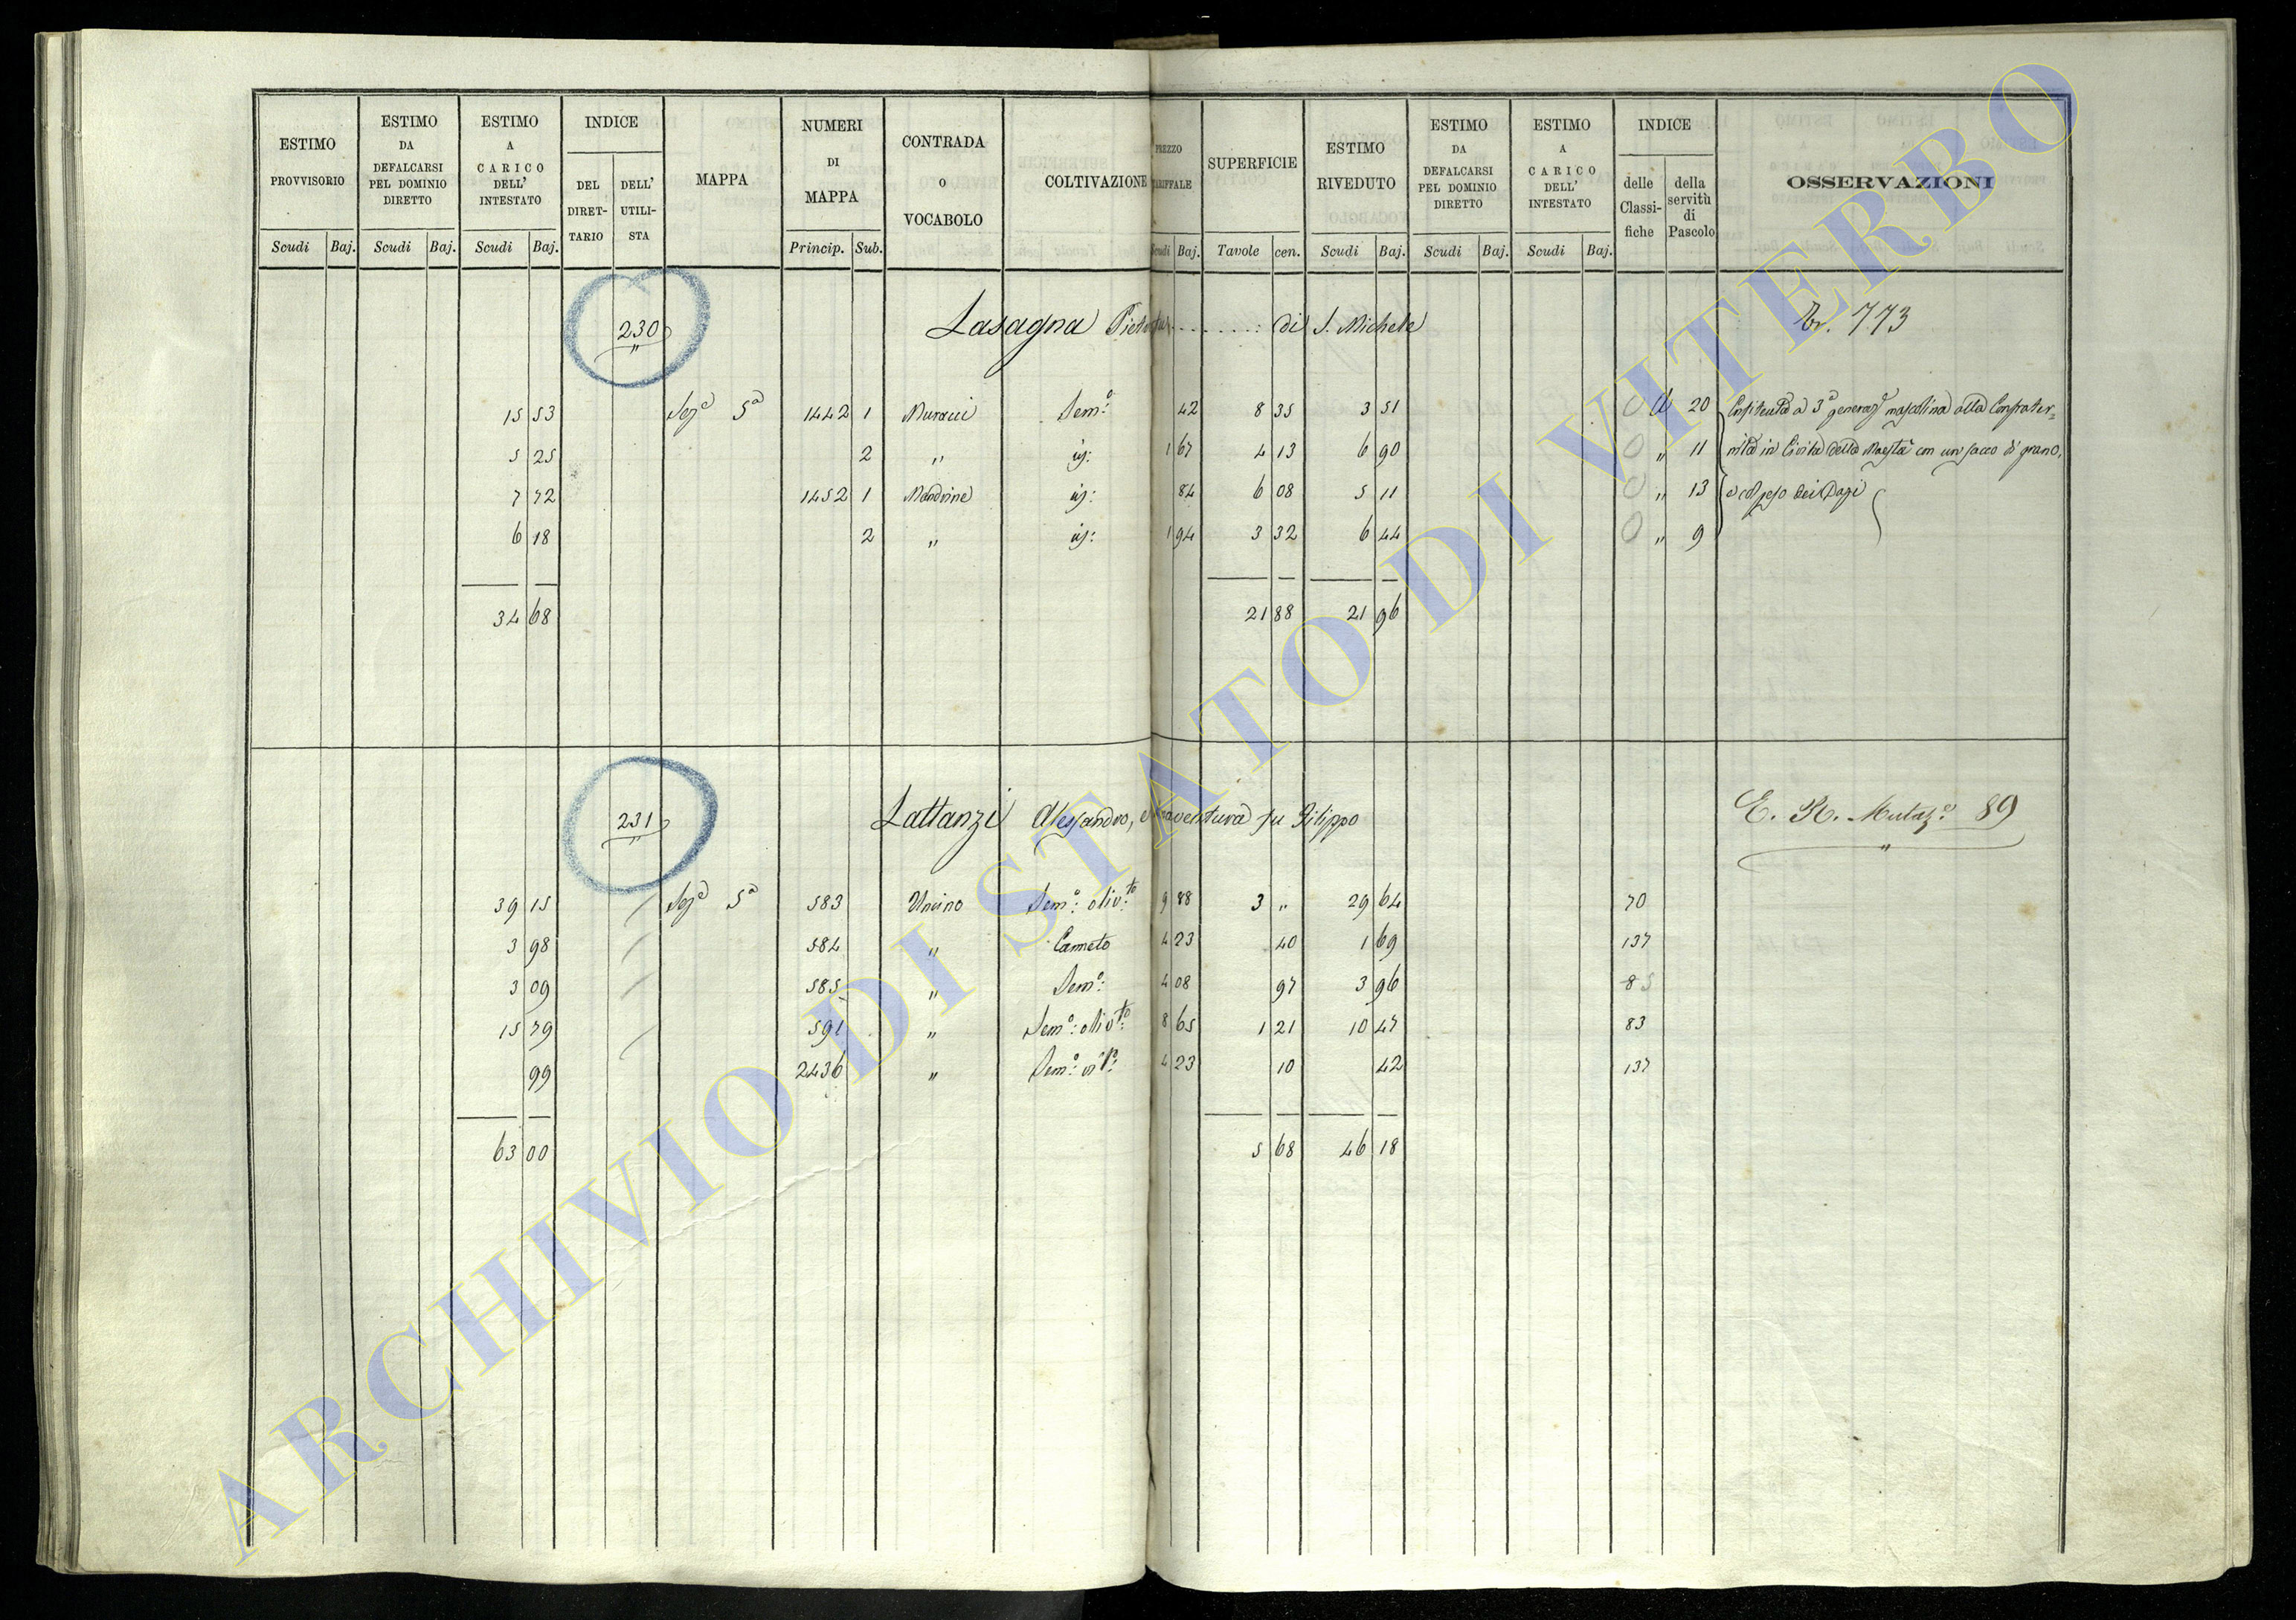 ESTIMO PROVVISORIO Scudi Baj.
ESTIMO DA DEFALCARSI PEL DOMINIO DIRETTO Scudi Baj.
ESTIMO A CARICO DELL' INTESTATO Scudi Baj.
INDICE DEL DIRET- TARIO DELL' UTILI- STA
MAPPA
NUMERI DI MAPPA Princip. Sub.
CONTRADA O VOCABOLO
COLTIVAZIONE
PREZZO TARIFFALE Scudi Baj.
SUPERFICIE Tavole cen.
ESTIMO RIVEDUTO Scudi Baj.
ESTIMO DA DEFALCARSI PEL DOMINIO DIRETTO Scudi Baj.
ESTIMO A CARICO DELL' INTESTATO Scudi Baj.
INDICE delle Classi- fiche della servitù di Pascolo
OSSERVAZIONI
230 Lasagna di S. Michele 773
15 53 Sez.e 5a 1442 1 Muracci Sem.o 42 8 35 3 51 20
5 25 2 " 1 67 4 13 6 90 " 11
7 72 1452 1 Mandrine 84 6 08 5 11 " 13
6 18 2 " 1 94 3 32 6 44 " 9
a 3a generaz.e mascolina alla Confrater=
nita in Civita della Maestà con un sacco di grano,
34 68 21 88 21 96
231 Lattanzi Alessandro, fu Filippo E. R. Mutaz.e 89
39 15 Sez.e 5a 583 Uncino Sem.o oliv.to 9 88 3 " 29 64 70
3 98 584 " Canneto 4 23 40 1 69 137
3 09 585 " Sem.o 4 08 97 3 96 85
15 79 591 " Sem.o oliv.to 8 65 1 21 10 47 83
99 2436 " Sem.o 4 23 10 42 137
63 00 5 68 46 18
ARCHIVIO DI STATO DI VITERBO